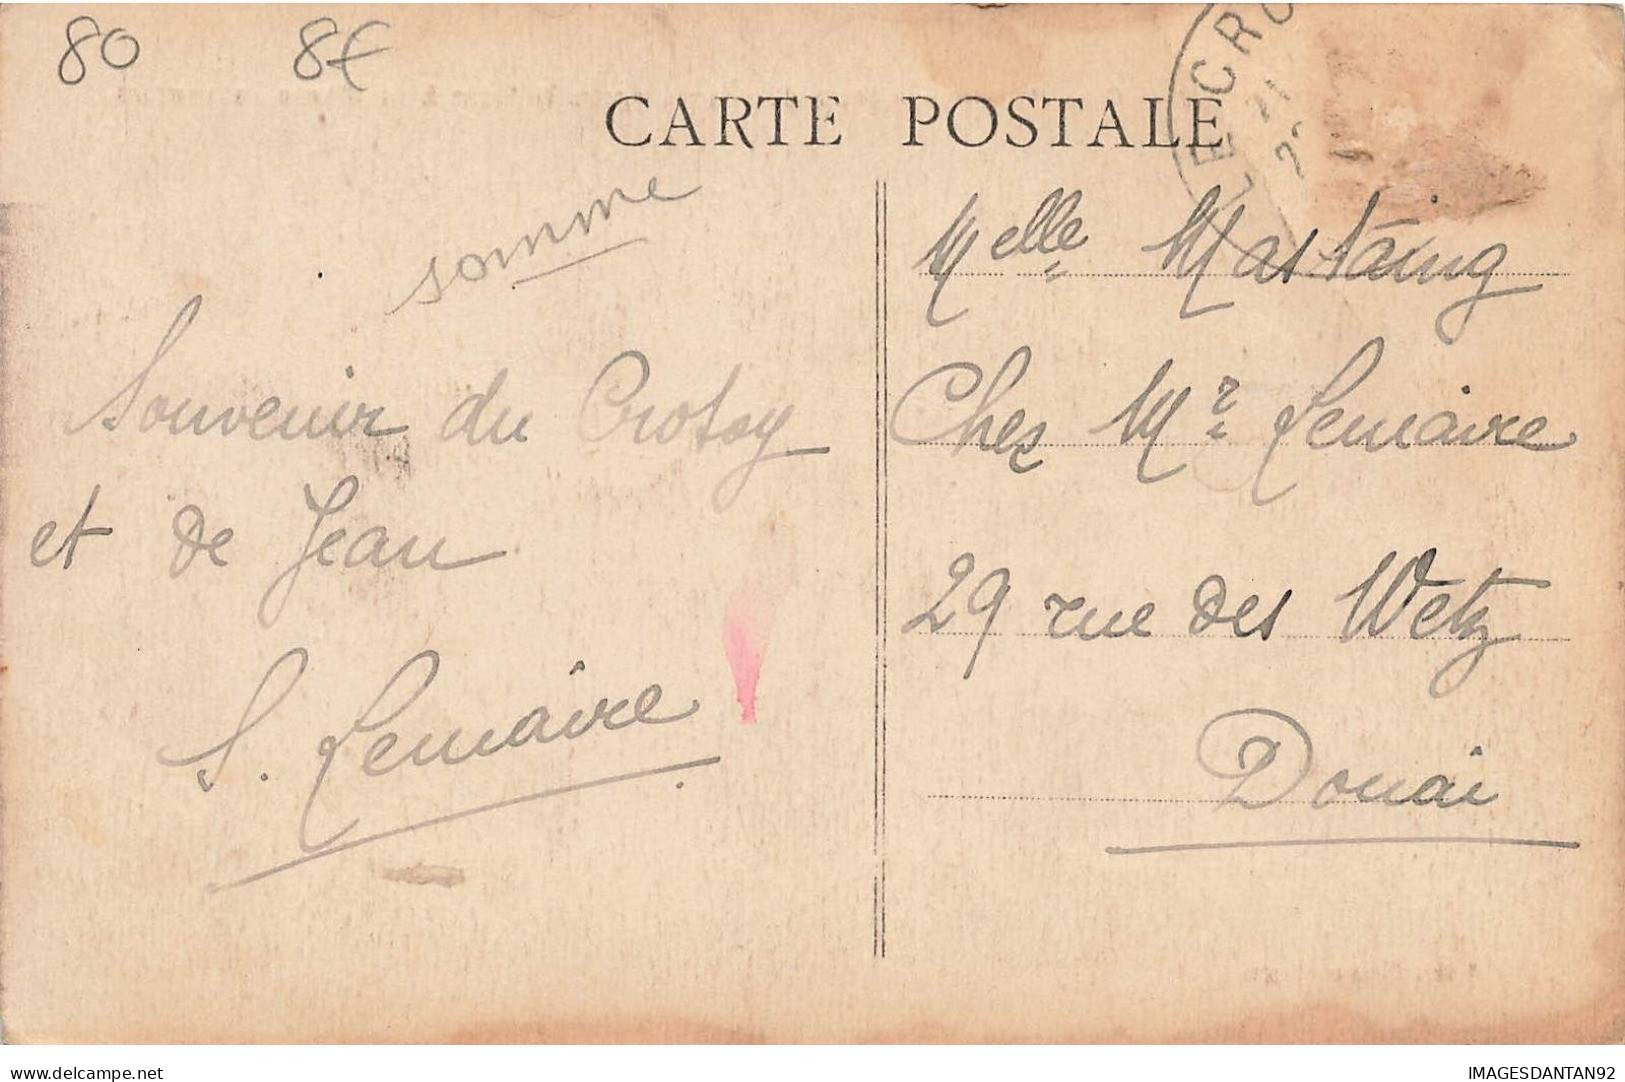 80 8€
CARTE POSTALE
LE CRO
somme
Souvenir du Crotoy
et de Jean
S. Lemaire
Melle Mastaing
Chez Mr Lemaire
29 rue des Wetz
Douai
IMAGESDANTAN92